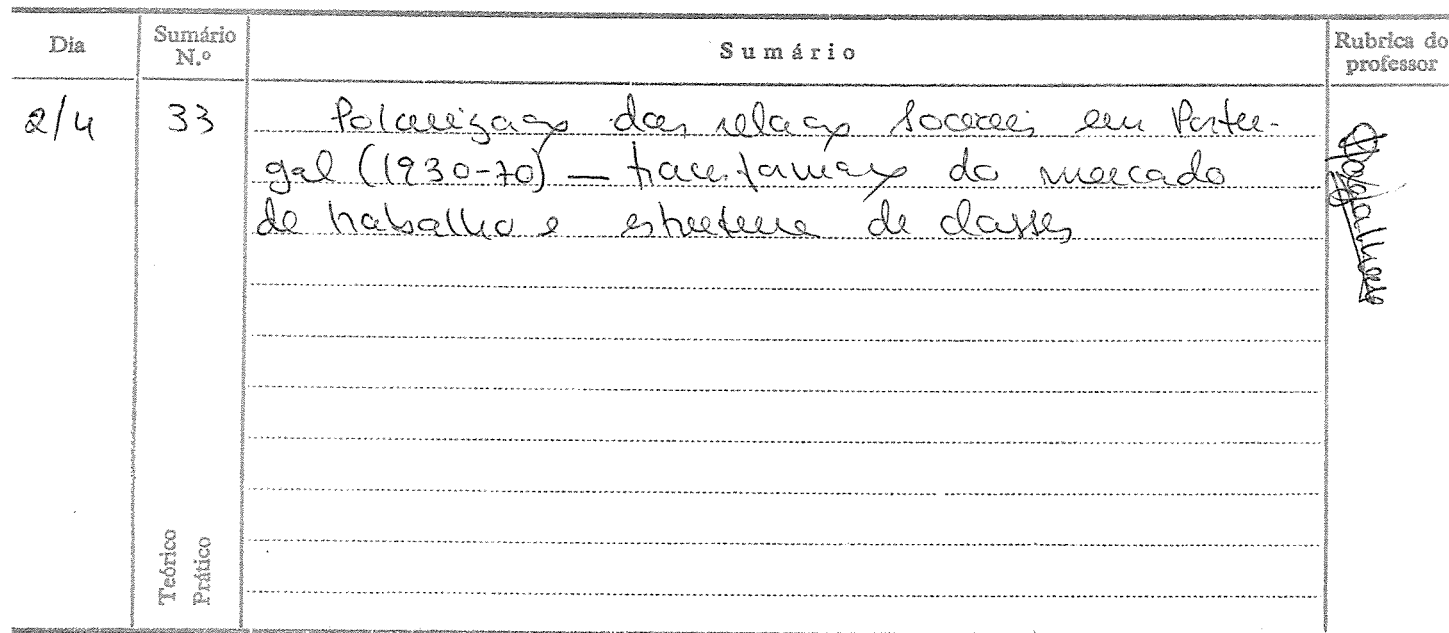 Dia Sumário N.º Sumário Rubrica do professor
2/4 33 Polarização das relações sociais em Portu-
gal (1930-70) — do mercado
de trabalho e estrutura de classes
Teórico
Prático